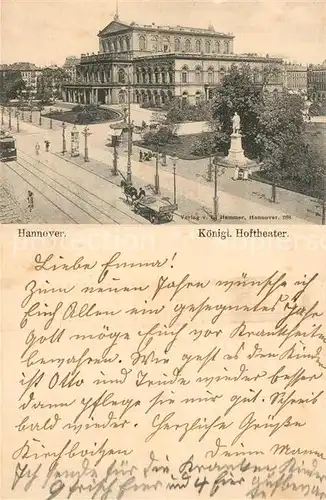 Verlag v. L. Hemmer, Hannover.
Hannover.
Königl. Hoftheater.
Liebe Emma!
Zum neuen Jahre wünsche ich
Euch Allen ein gesegnetes Jahr
Gott möge Euch vor Krankheiten
bewahren. Wie geht es den Kindern
ist Otto und Trude wieder besser
dann pflege sie nur gut. Schreib
bald wieder. Herzliche Grüße
Deine Mama
Ich sende für die Kranken Kinder
4 Eier